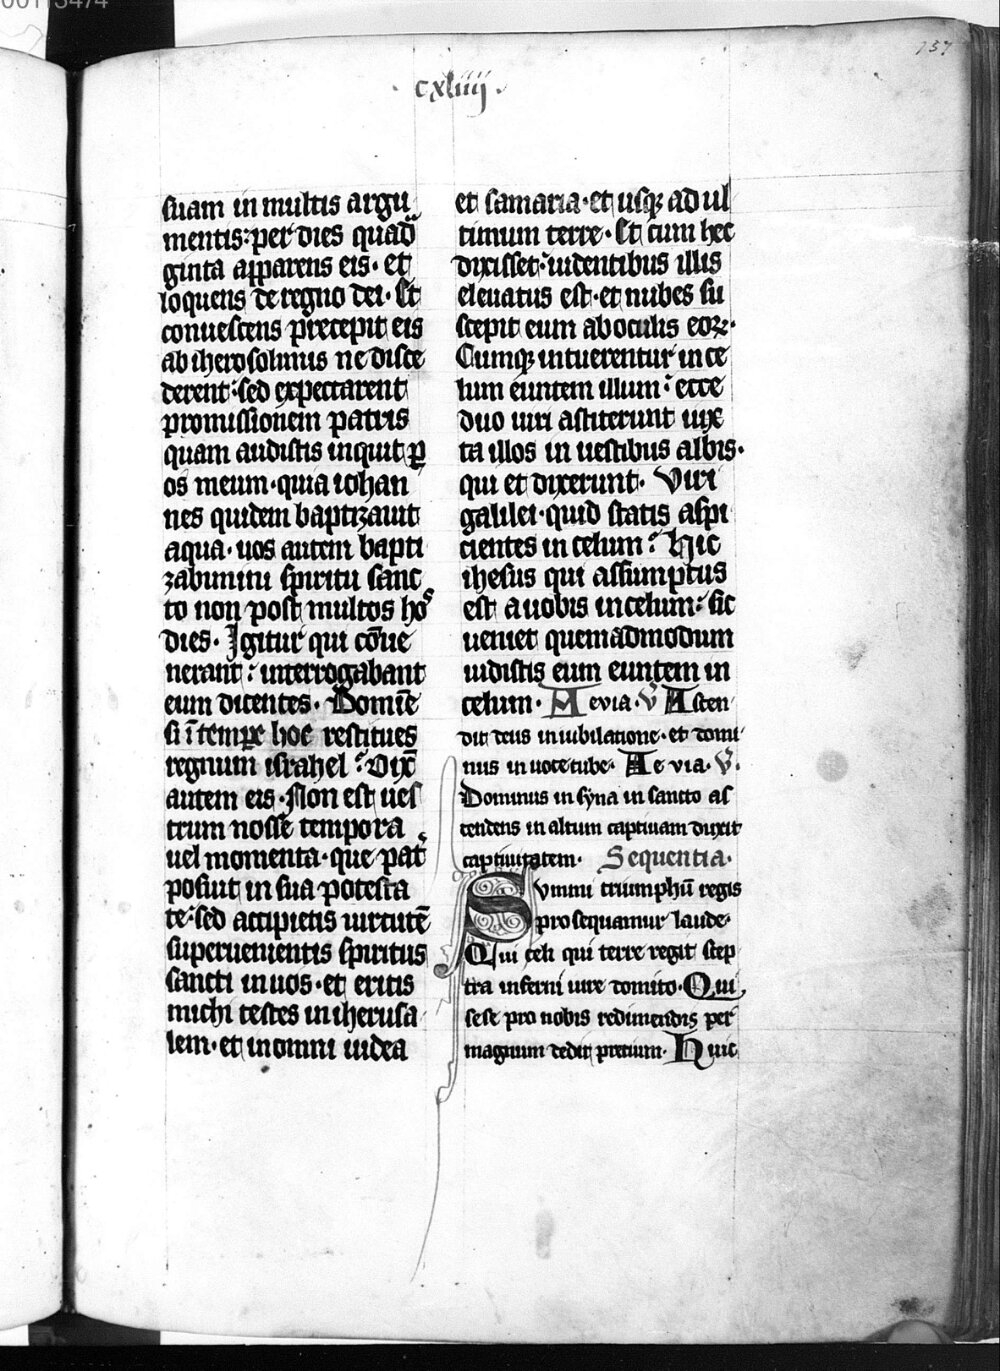 00113474
157
· cxliiij ·
suam in multis argu
mentis: per dies quad
ginta apparens eis· et
loquens de regno dei· Et
conuescens precepit eis
ab iherosolimis ne disce
derent: sed expectarent
promissionem patris
quam audistis inquit ꝑ
os meum· quia iohan
nes quidem baptizauit
aqua· uos autem bapti
zabimini spiritu sanc
to non post multos hos
dies· Igitur qui cōue
nerant: interrogabant
eum dicentes· Domīe
si ī tempꝛe hoc restitues
regnum israhel? Dixͭ
autem eis· Non est ues
trum nosse tempora
uel momenta· que pat̉
posuit in sua potesta
te: sed accipietis uirtutē
superuenientis spiritus
sancti in uos· et eritis
michi testes in iherusa
lem· et in omni iudea
et samaria· et usqꝫ ad ul
timum terre· Et cum hec
dixisset: uidentibus illis
eleuatus est· et nubes su
scepit eum ab oculis eoꝝ·
Cumqꝫ intuerentur in ce
lum euntem illum: ecce
duo uiri astiterunt iuxͭ
ta illos in uestibus albis·
qui et dixerunt· Viri
galilei· quid statis aspi
cientes in celum? Hic
ihesus qui assumptus
est a uobis in celum: sic
ueniet quemadmodum
uidistis eum euntem in
celum· Aeuia· ℣ Ascen
dit deus in iubilatione· et domi
nus in uoce tube· Ae uia· ℣·
Dominus in syna in sancto as
cendens in altum captiuam duxit
captiuitatem· Sequentia·
Svmmi triumphū regis
prosequamur laude·
Qui celi qui terre regit scep
tra inferni iure domito· Qui
sese pro nobis redimendis per
magnum dedit precium· Huic